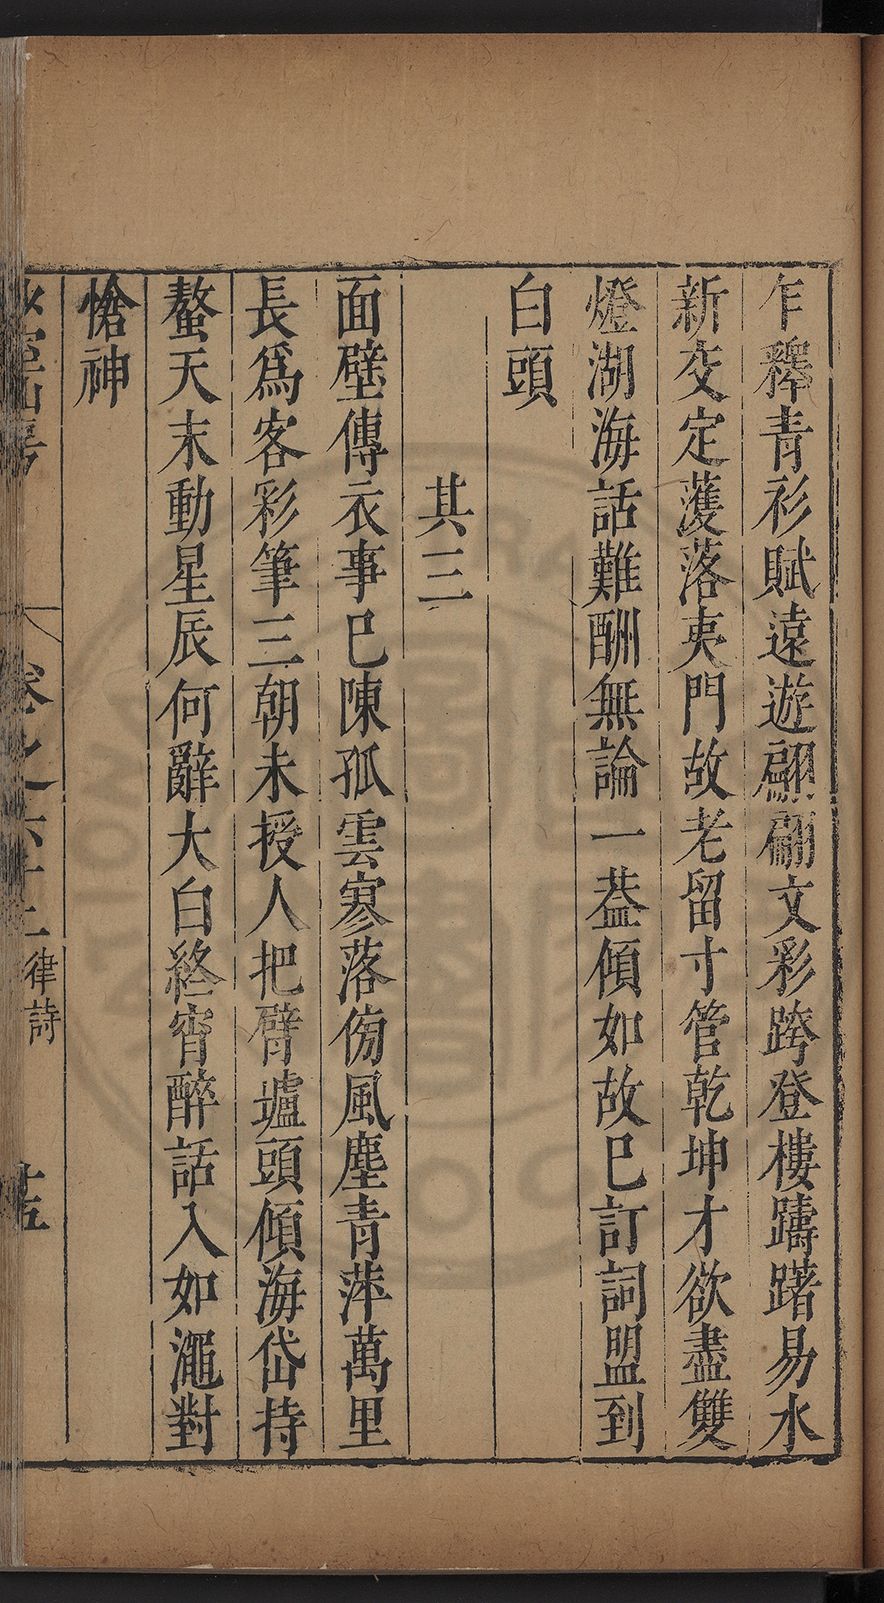 乍釋青衫賦遠遊翩翩文彩跨登樓躊躇易水
新交定濩落夷門故老留寸管乾坤才欲盡雙
燈湖海話難酬無論一葢傾如故已訂詞盟到
白頭
其三
面壁傳衣事已陳孤雲寥落傍風塵青萍萬里
長爲客彩筆三朝未授人把臂壚頭傾海岱持
螯天末動星辰何辭大白終宵醉話入如澠對
愴神
房
卷之六十 律詩